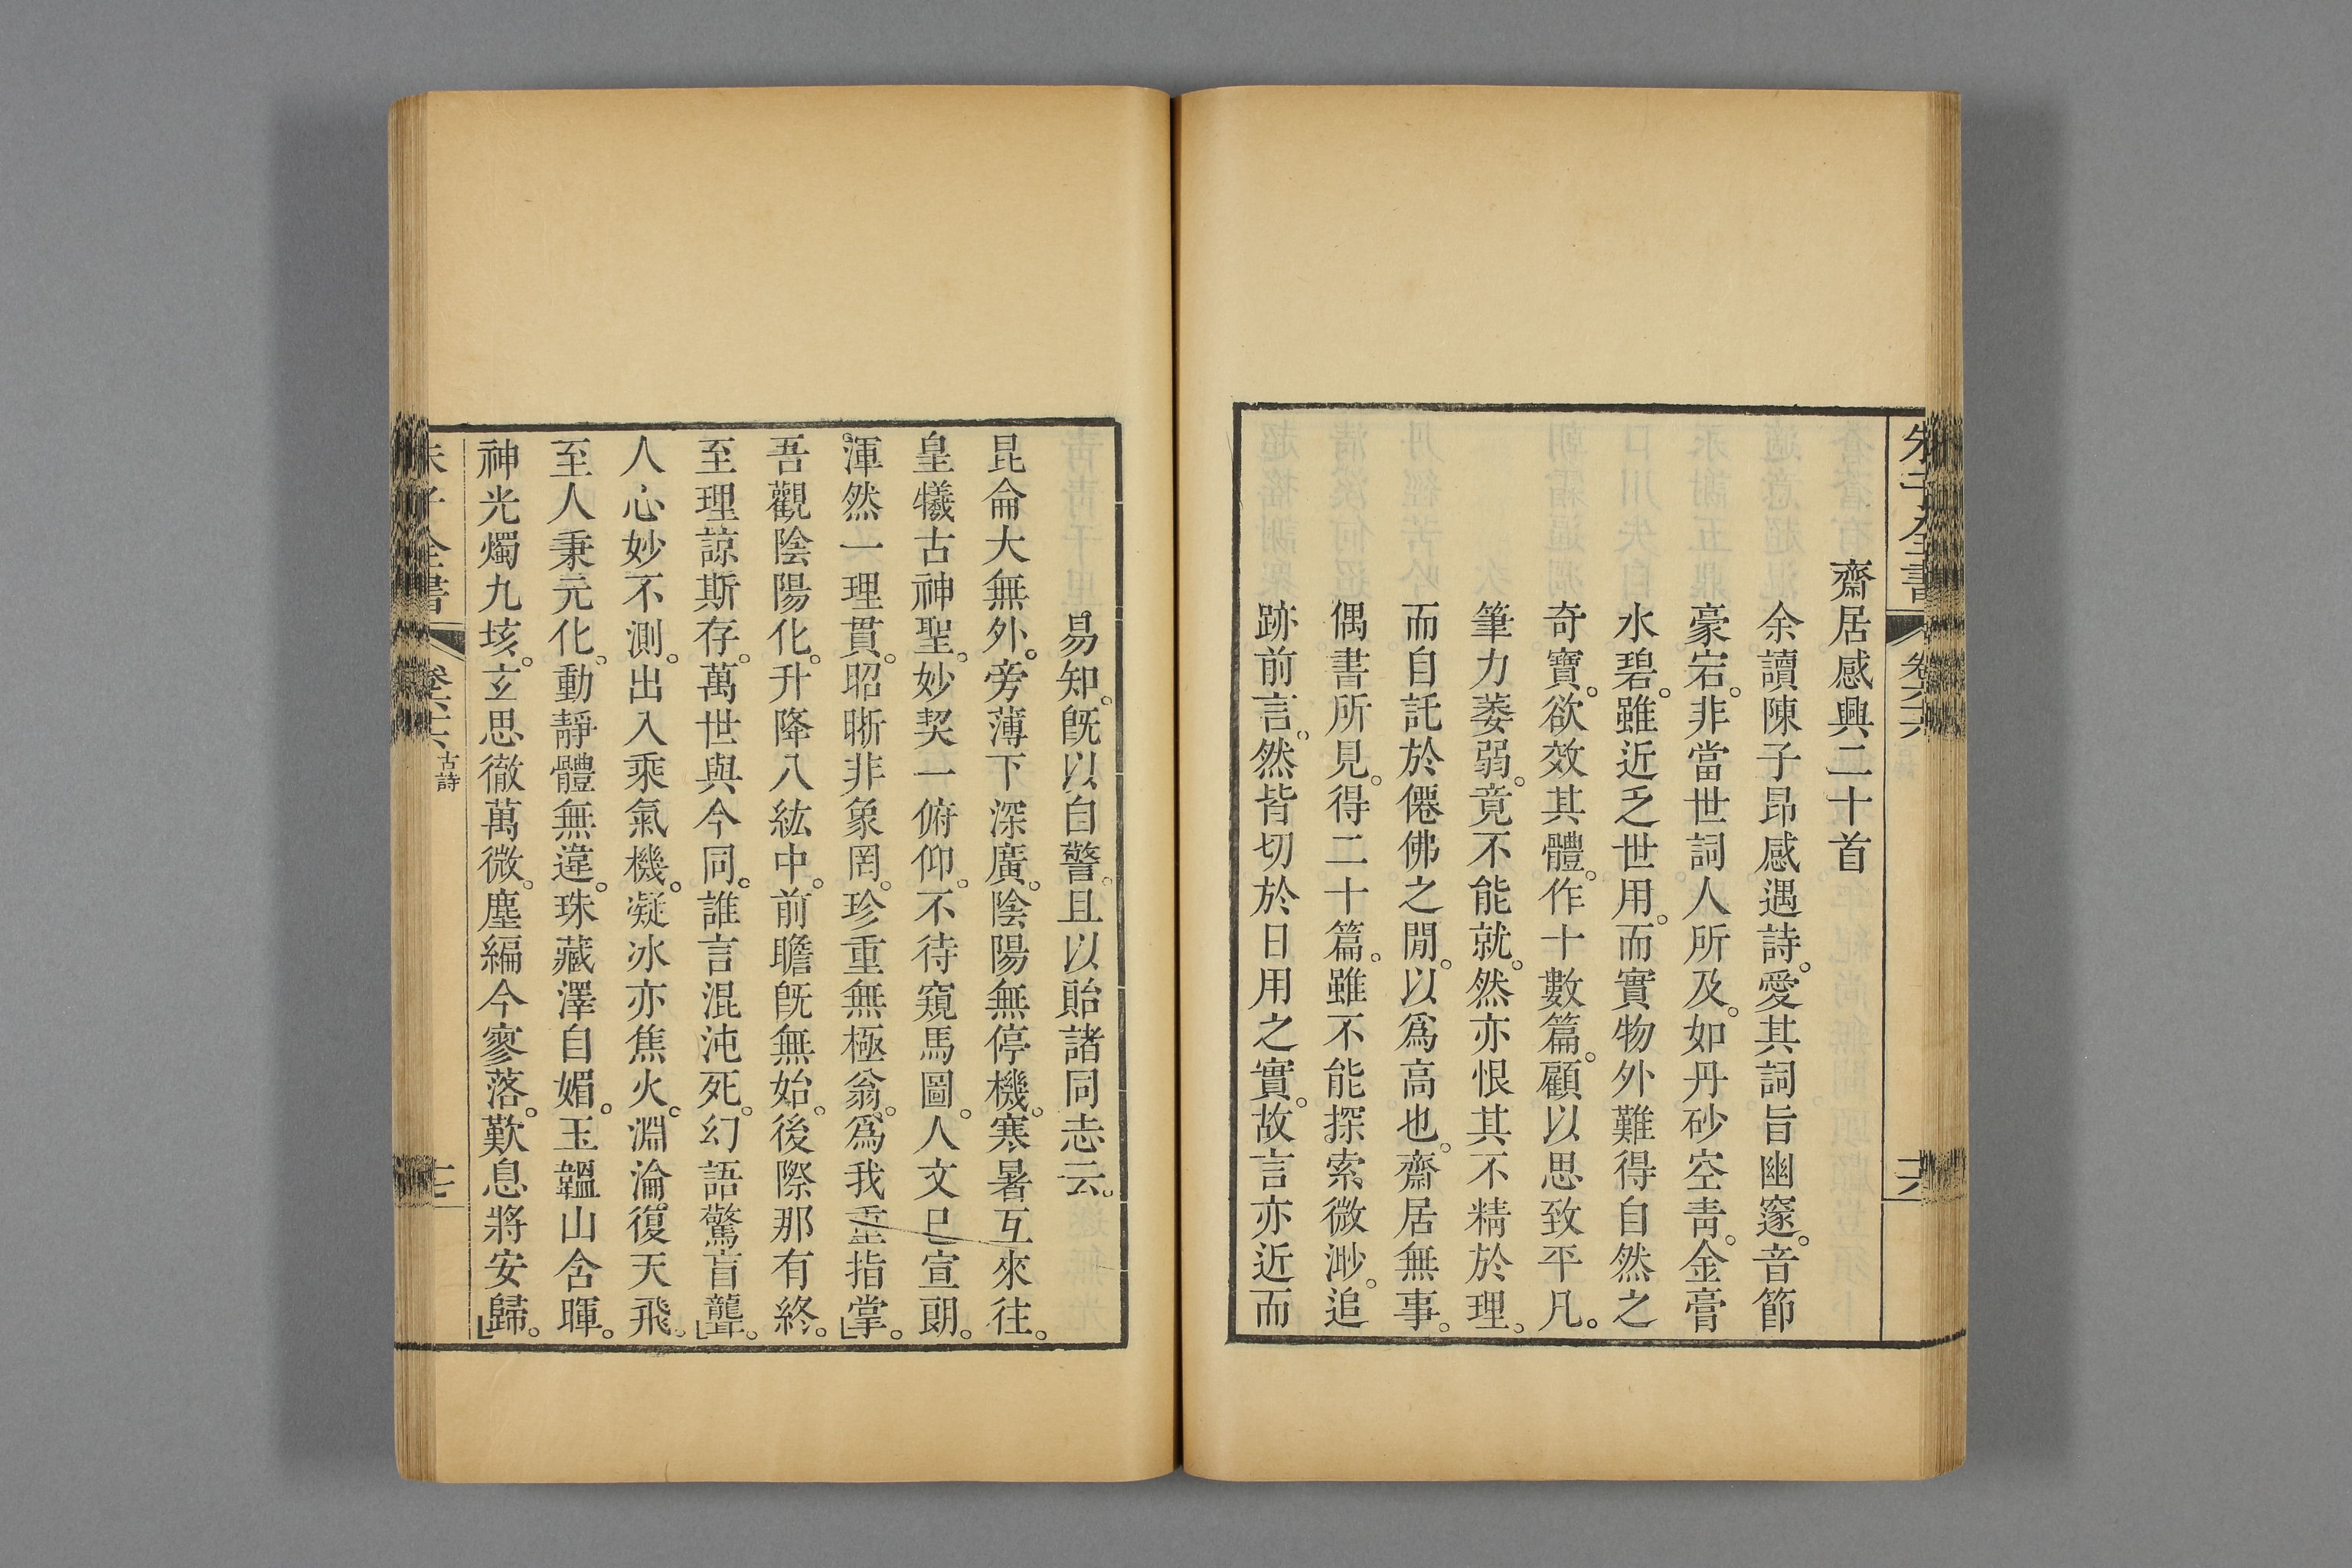 朱子全書 卷六十六 十六
齋居感興二十首
余讀陳子昂感遇詩。愛其詞旨幽邃。音節
豪宕。非當世詞人所及。如丹砂空靑。金膏
水碧。雖近乏世用。而實物外難得自然之
奇寶。欲效其體。作十數篇。顧以思致平凡。
筆力萎弱。竟不能就。然亦恨其不精於理。
而自託於僊佛之閒。以爲高也。齋居無事。
偶書所見。得二十篇。雖不能探索微渺。追
跡前言。然皆切於日用之實。故言亦近而
易知。旣以自警。且以貽諸同志云。
昆侖大無外。旁薄下深廣。陰陽無停機。寒暑互來往。
皇犧古神聖。妙契一俯仰。不待窺馬圖。人文已宣朗。
渾然一理貫。昭晰非象罔。珍重無極翁。爲我重指掌。
吾觀陰陽化。升降八紘中。前瞻旣無始。後際那有終。
至理諒斯存。萬世與今同。誰言混沌死。幻語驚盲聾。
人心妙不測。出入乘氣機。凝冰亦焦火。淵淪復天飛。
至人秉元化。動靜體無違。珠藏澤自媚。玉韞山含暉。
神光燭九垓。玄思徹萬微。塵編今寥落。歎息將安歸。
朱子全書 卷六十六 古詩 十七